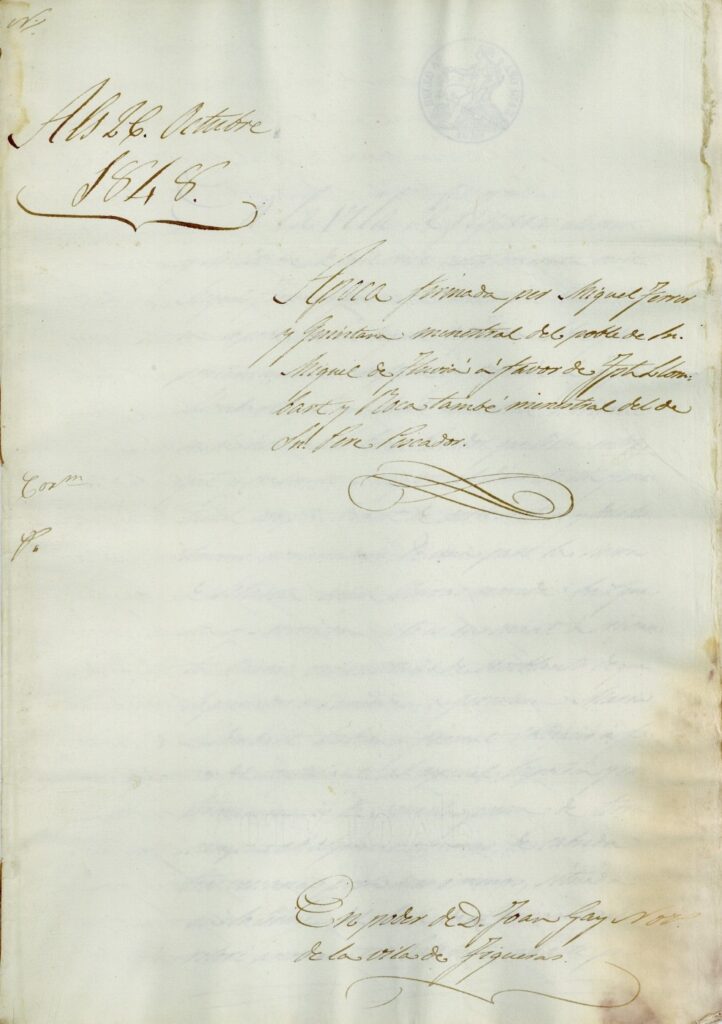 Nº
Als 26. Octubre
1848.
Apoca firmada per Miquel Ferrer
y Quintana menestral del poble de Sn.
Miquel de Fluviá á favor de Jph Llom-
bart y Roca també menestral del de
Sn. Pere Pescador.
Corm
En poder de D. Joan Gay Not.
de la vila de Figueras.